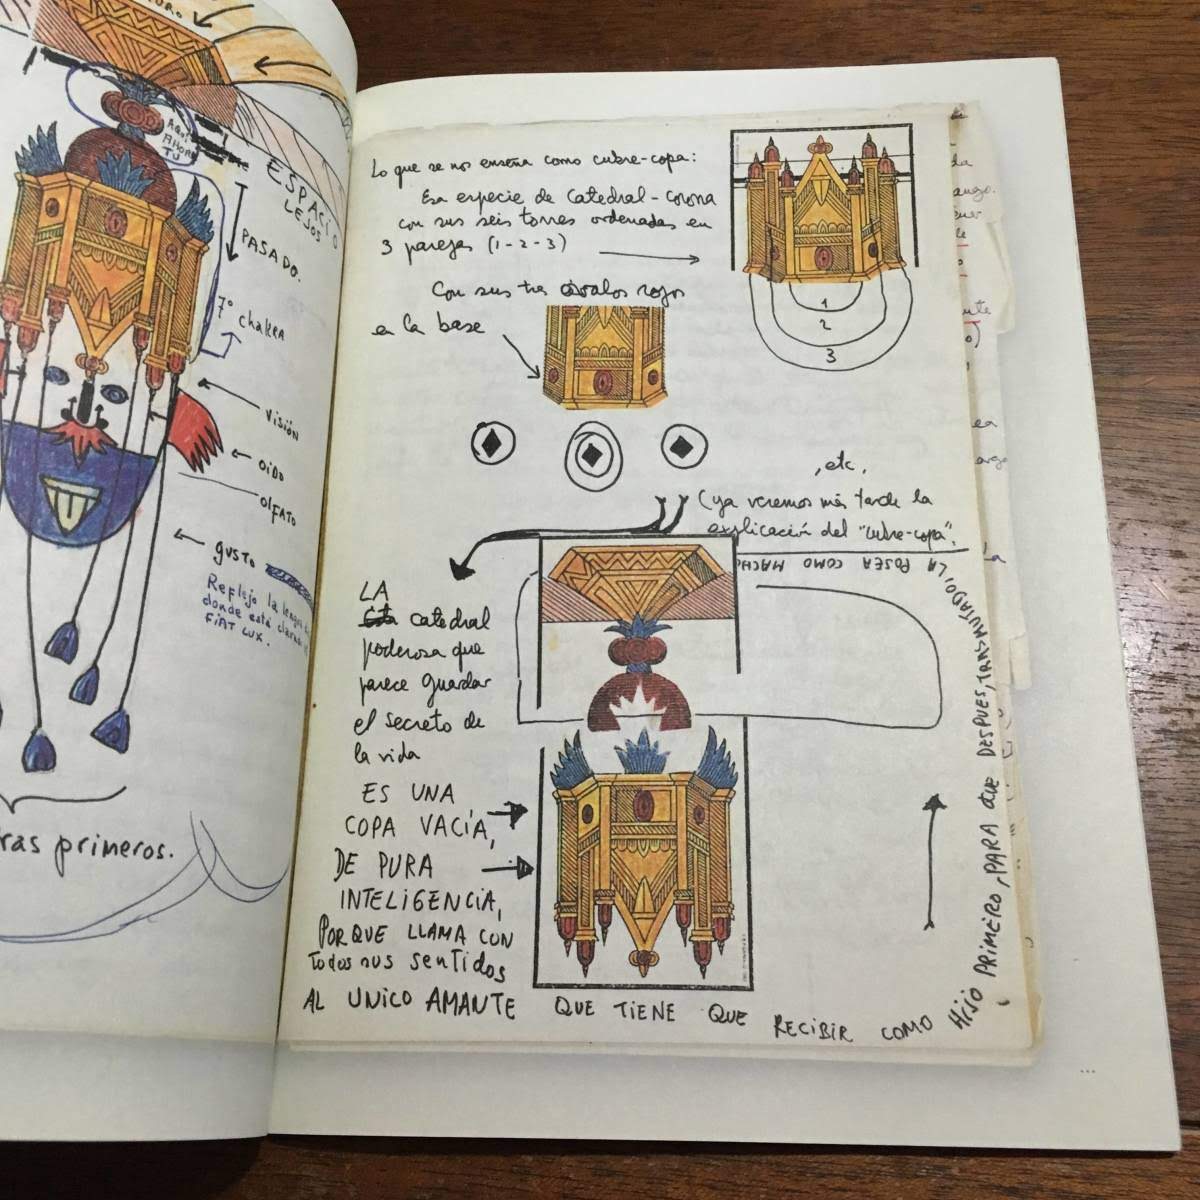 AQUI
AHORA
TU
ESPACIO
LEJOS
PASADO.
7º chakra
VISIÓN
OIDO
OlFATO
GUSTO
Reflejo la lengua
donde está
FIAT LUX.
ras primeros.
Lo que se nos enseña como cubre-copa:
Esa especie de Catedral-Corona
con sus seis torres ordenadas en
3 parejas (1-2-3)
1
2
3
Con sus tres óvalos rojos
en la base
, etc,
(ya veremos más tarde la
explicación del "cubre-copa".
LA
catedral
poderosa que
parece guardar
el secreto de
la vida
ES UNA
COPA VACÍA,
DE PURA
INTELIGENCIA,
PORQUE LLAMA CON
Todos sus sentidos
AL UNICO AMANTE QUE TIENE QUE RECIBIR COMO HIJO PRIMERO, PARA QUE DESPUES, TRANSMUTADO, LA POSEA COMO MACHO